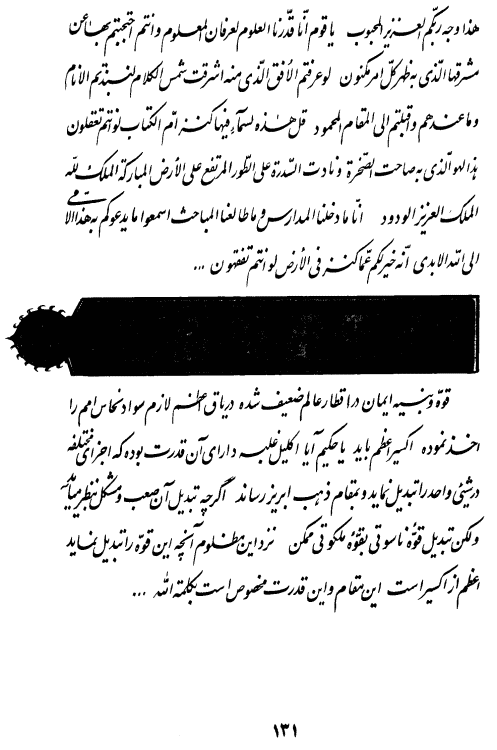 هذا وجه ربّکم العزیز المحبوب یا قوم انّا قدّرنا العلوم لعرفان المعلوم و انتم احتجبتم بها عن
مشرقها الّذی به ظهر کلّ امر مکنون لو عرفتم الأفق الّذی منه اشرقت شمس الکلام لنبذتم الأنام
و ما عندهم و اقبلتم الی المقام المحمود قل هذه لسمآء فیها کنز امّ الکتاب لو انتم تعقلون
هذا لهو الّذی به صاحت الصّخرة و نادت السّدرة علی الطّور المرتفع علی الأرض المبارکة الملک للّه
الملک العزیز الودود انّا ما دخلنا المدارس و ما طالعنا المباحث اسمعوا ما یدعوکم به هذا الأمّی
الی اللّه الأبدی انّه خیر لکم عمّا کنز فی الأرض لو انتم تفقهون ...
قوّه و بنیه ایمان در اقطار عالم ضعیف شده دریاق اعظم لازم سواد نحاس امم را
اخذ نموده اکسیر اعظم باید یا حکیم آیا اکلیل غلبه دارای آن قدرت بوده که اجزای مختلفه
در شیئی واحد را تبدیل نماید و بمقام ذهب ابریز رساند اگرچه تبدیل آن صعب و مشکل بنظر میآید
ولکن تبدیل قوّه ناسوتی بقوّه ملکوتی ممکن نزد این مظلوم آنچه این قوّه را تبدیل نماید
اعظم از اکسیر است این مقام و این قدرت مخصوص است بکلمة اللّه ...
۱۳۱